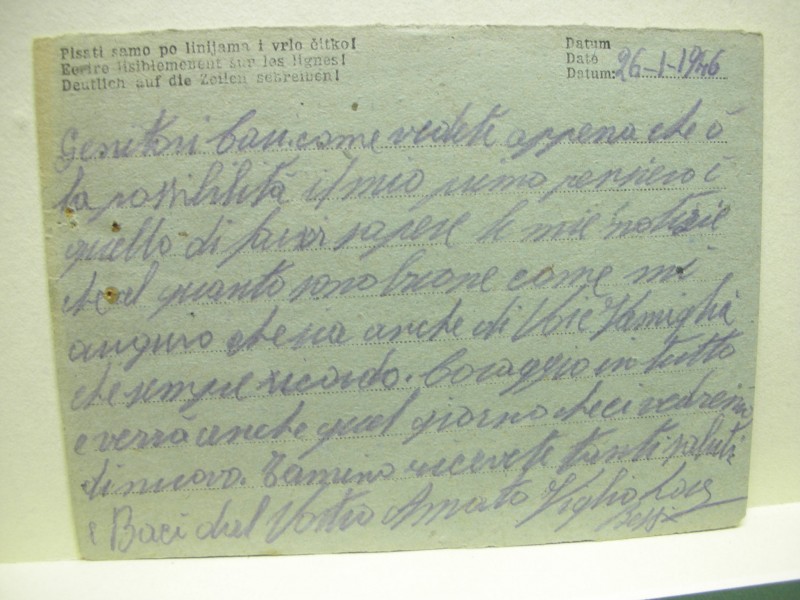 Pisati samo po linijama i vrlo čitko!
Ecrire lisiblement sur les lignes!
Deutlich auf die Zeilen schreiben!
Datum
Date
Datum: 26-1-1946
Genitori Cari come vedete appena che ó
la possibilità il mio primo pensiero é
quello di farvi sapere le mie notizie
che al quanto sono buone come mi
auguro che sia anche di Voi e Famiglia
che sempre ricordo. Coraggio in tutto
e verrà anche quel giorno che ci vedremo
di nuovo. Termino ricevete tanti saluti
e Baci dal Vostro Amato Figlio